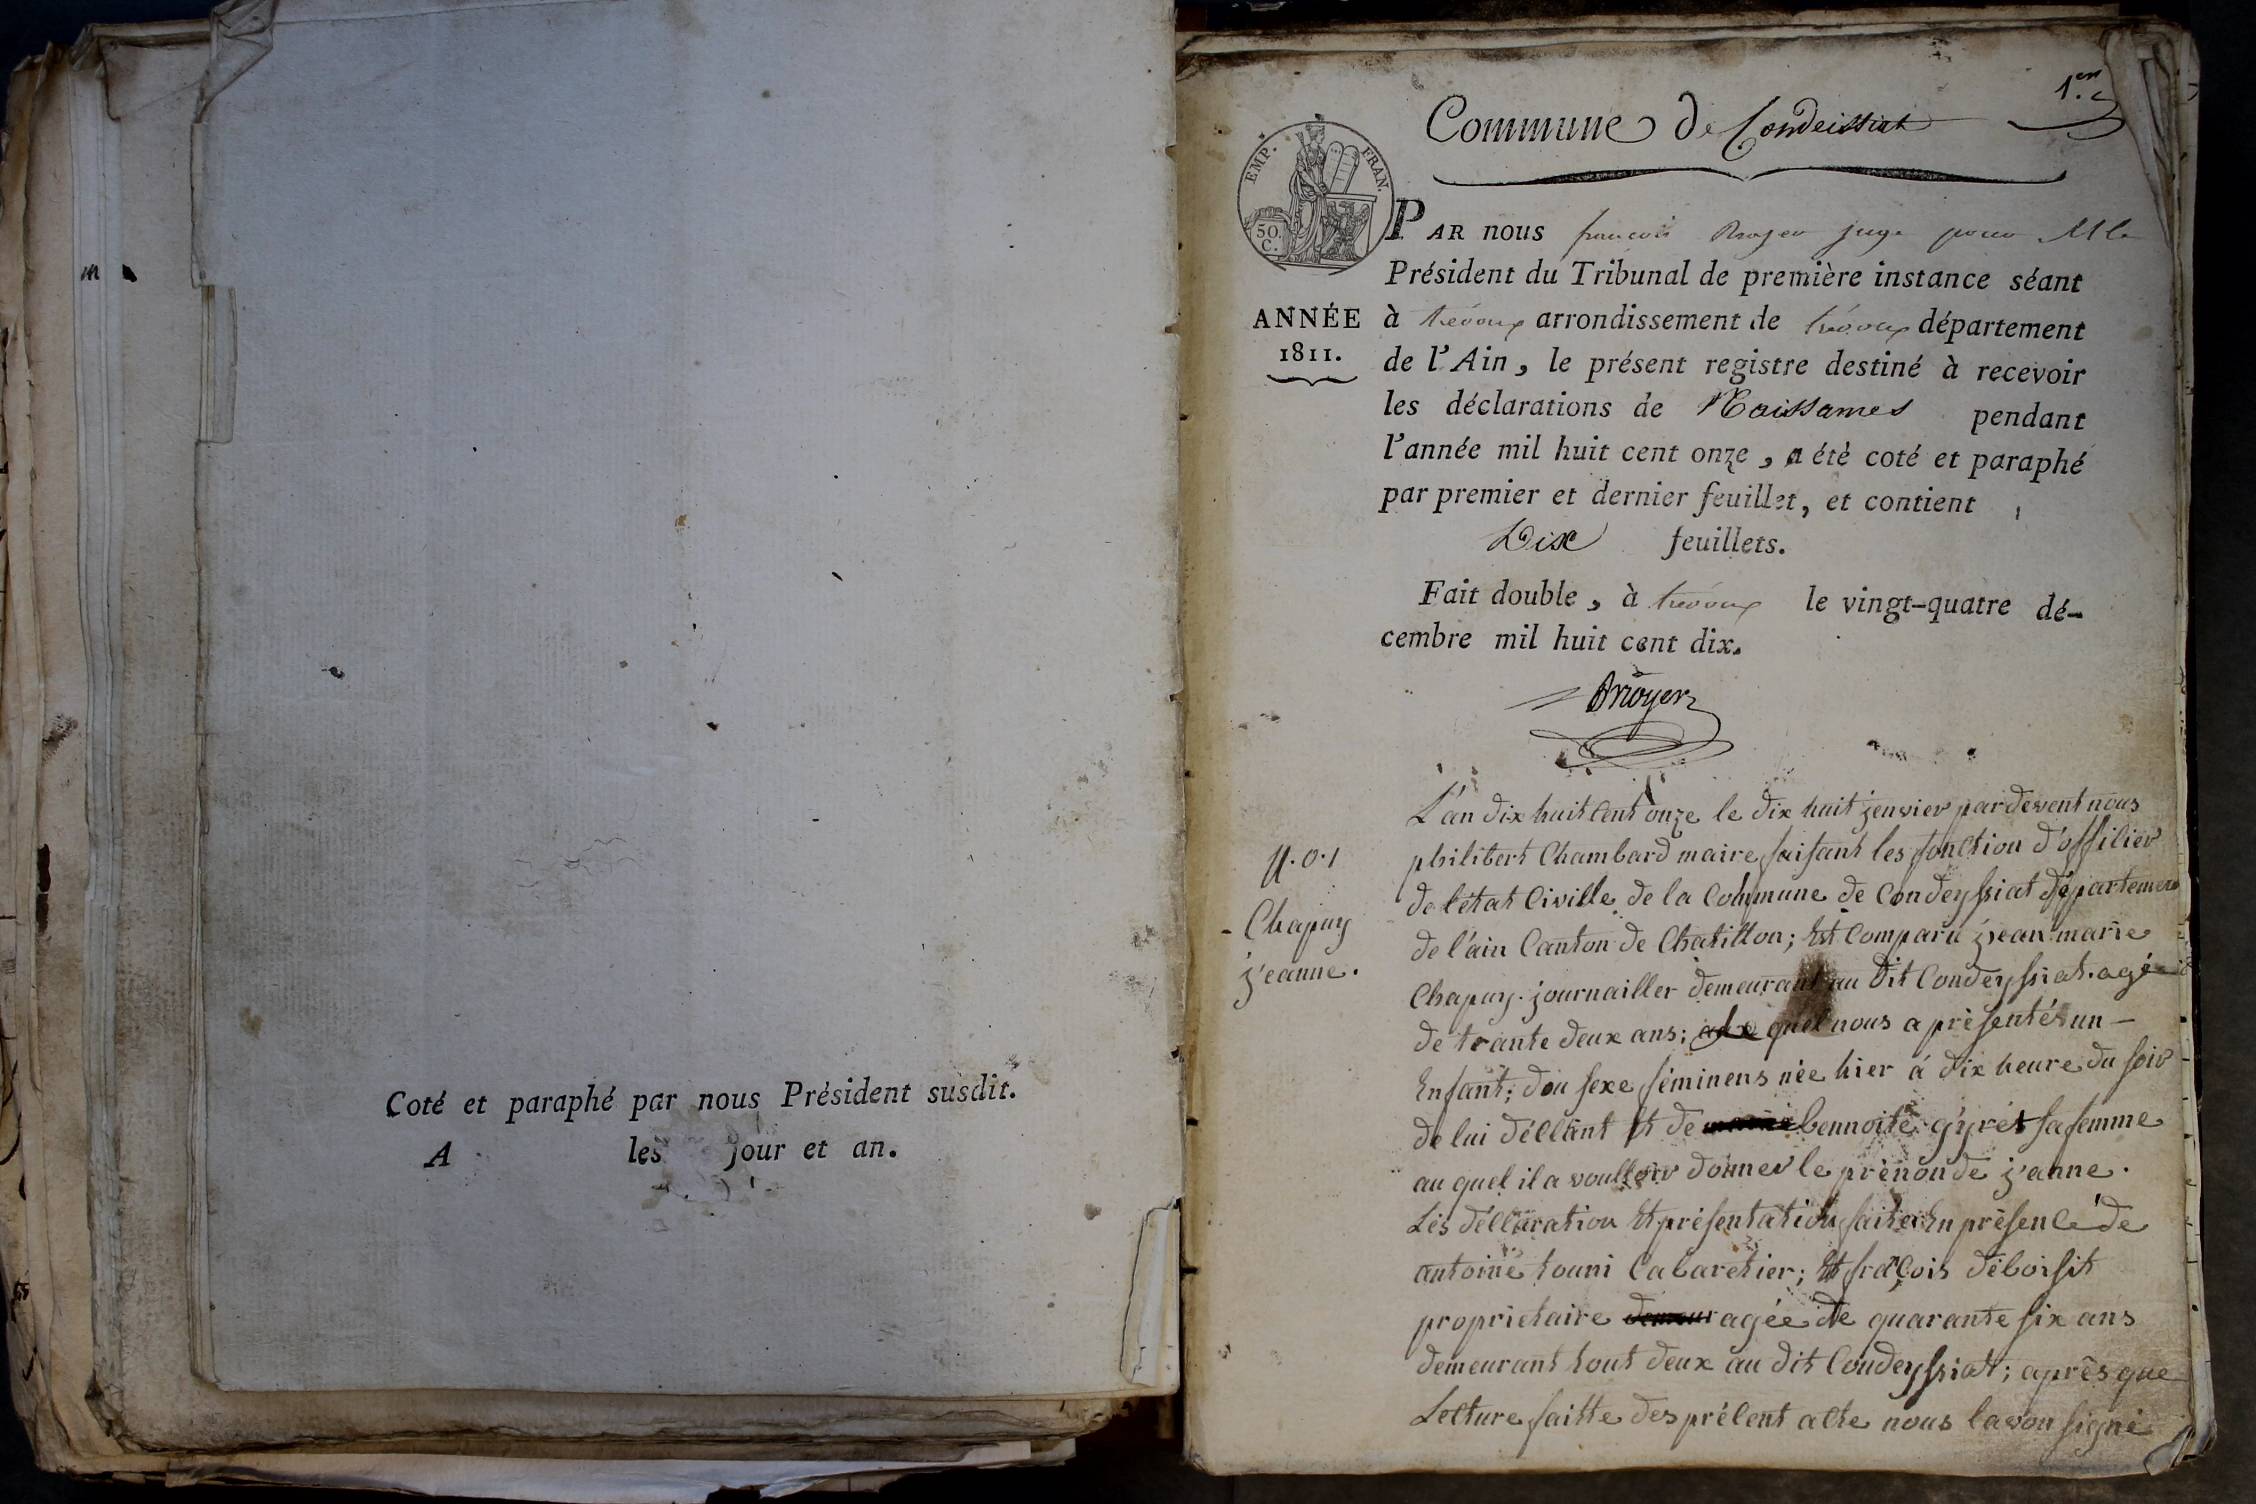 m
Coté et paraphé par nous Président susdit.
A les jour et an.
1.er
Commune de Condeissiat
EMP. FRAN.
50. C.
ANNÉE
1811.
PAR nous françois juge pour M le
Président du Tribunal de première instance séant
à trévoux arrondissement de trévoux département
de l'Ain, le présent registre destiné à recevoir
les déclarations de Naissances pendant
l'année mil huit cent onze, a été coté et paraphé
par premier et dernier feuillet, et contient
Dix feuillets.
Fait double, à trévoux le vingt-quatre dé-
cembre mil huit cent dix.
n.o.1
Chapuy
jeanne.
L'an dix huit cent onze le dix huit jenvier pardevent nous
philibert Chambard maire faisant les fonction d'officier
de létat Civille de la Commune de Condeyssiat département
de l'ain Canton de Chatillon; Est Comparu jean marie
Chapuy. journailler demeurant au Dit Condeyssiat. agé
de trante deux ans; quel nous a présentér un –
Enfant; dou sexe féminens née hier á dix heure du soir
de lui déclant Et de bennoite gyret sa femme
au quel il a voulloir donner le prénon de j'eanne.
Lès déclaration Et présentation faite En présence de
antoine touni Cabaretier; Et fraçois déboisit
proprietaire demeur agée de quarante six ans
demeurant tout deux au dit Condeyssiat; aprês que
Lecture faitte des présent acte nous lavon signé